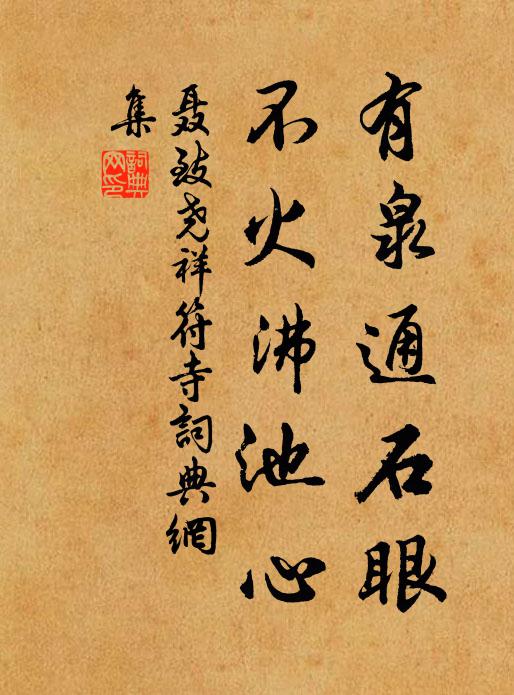 有泉通石眼
不火沸池心
聂致尧祥符寺詞典網
集
詞典
网印